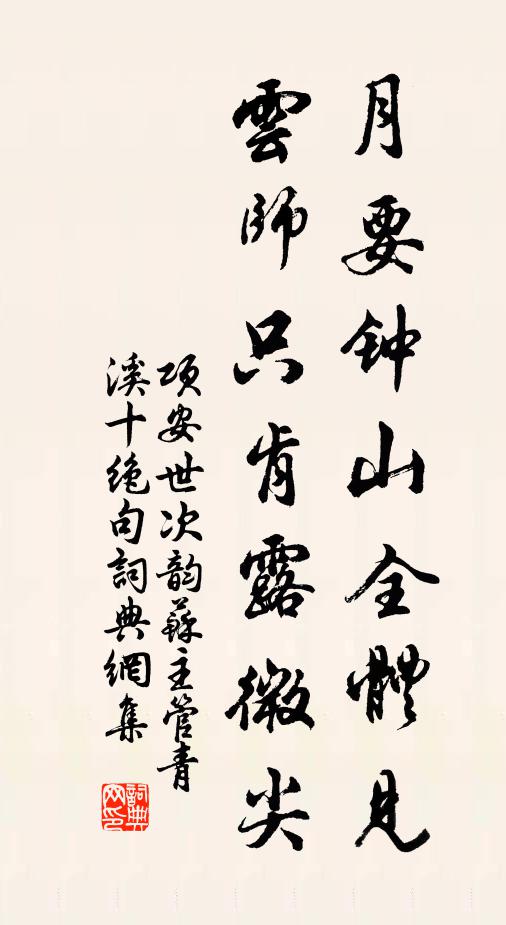 月要钟山全體見
雲師只肯露微尖
項安世次韵蘇主管青
溪十絶句詞典網集
詞典网印